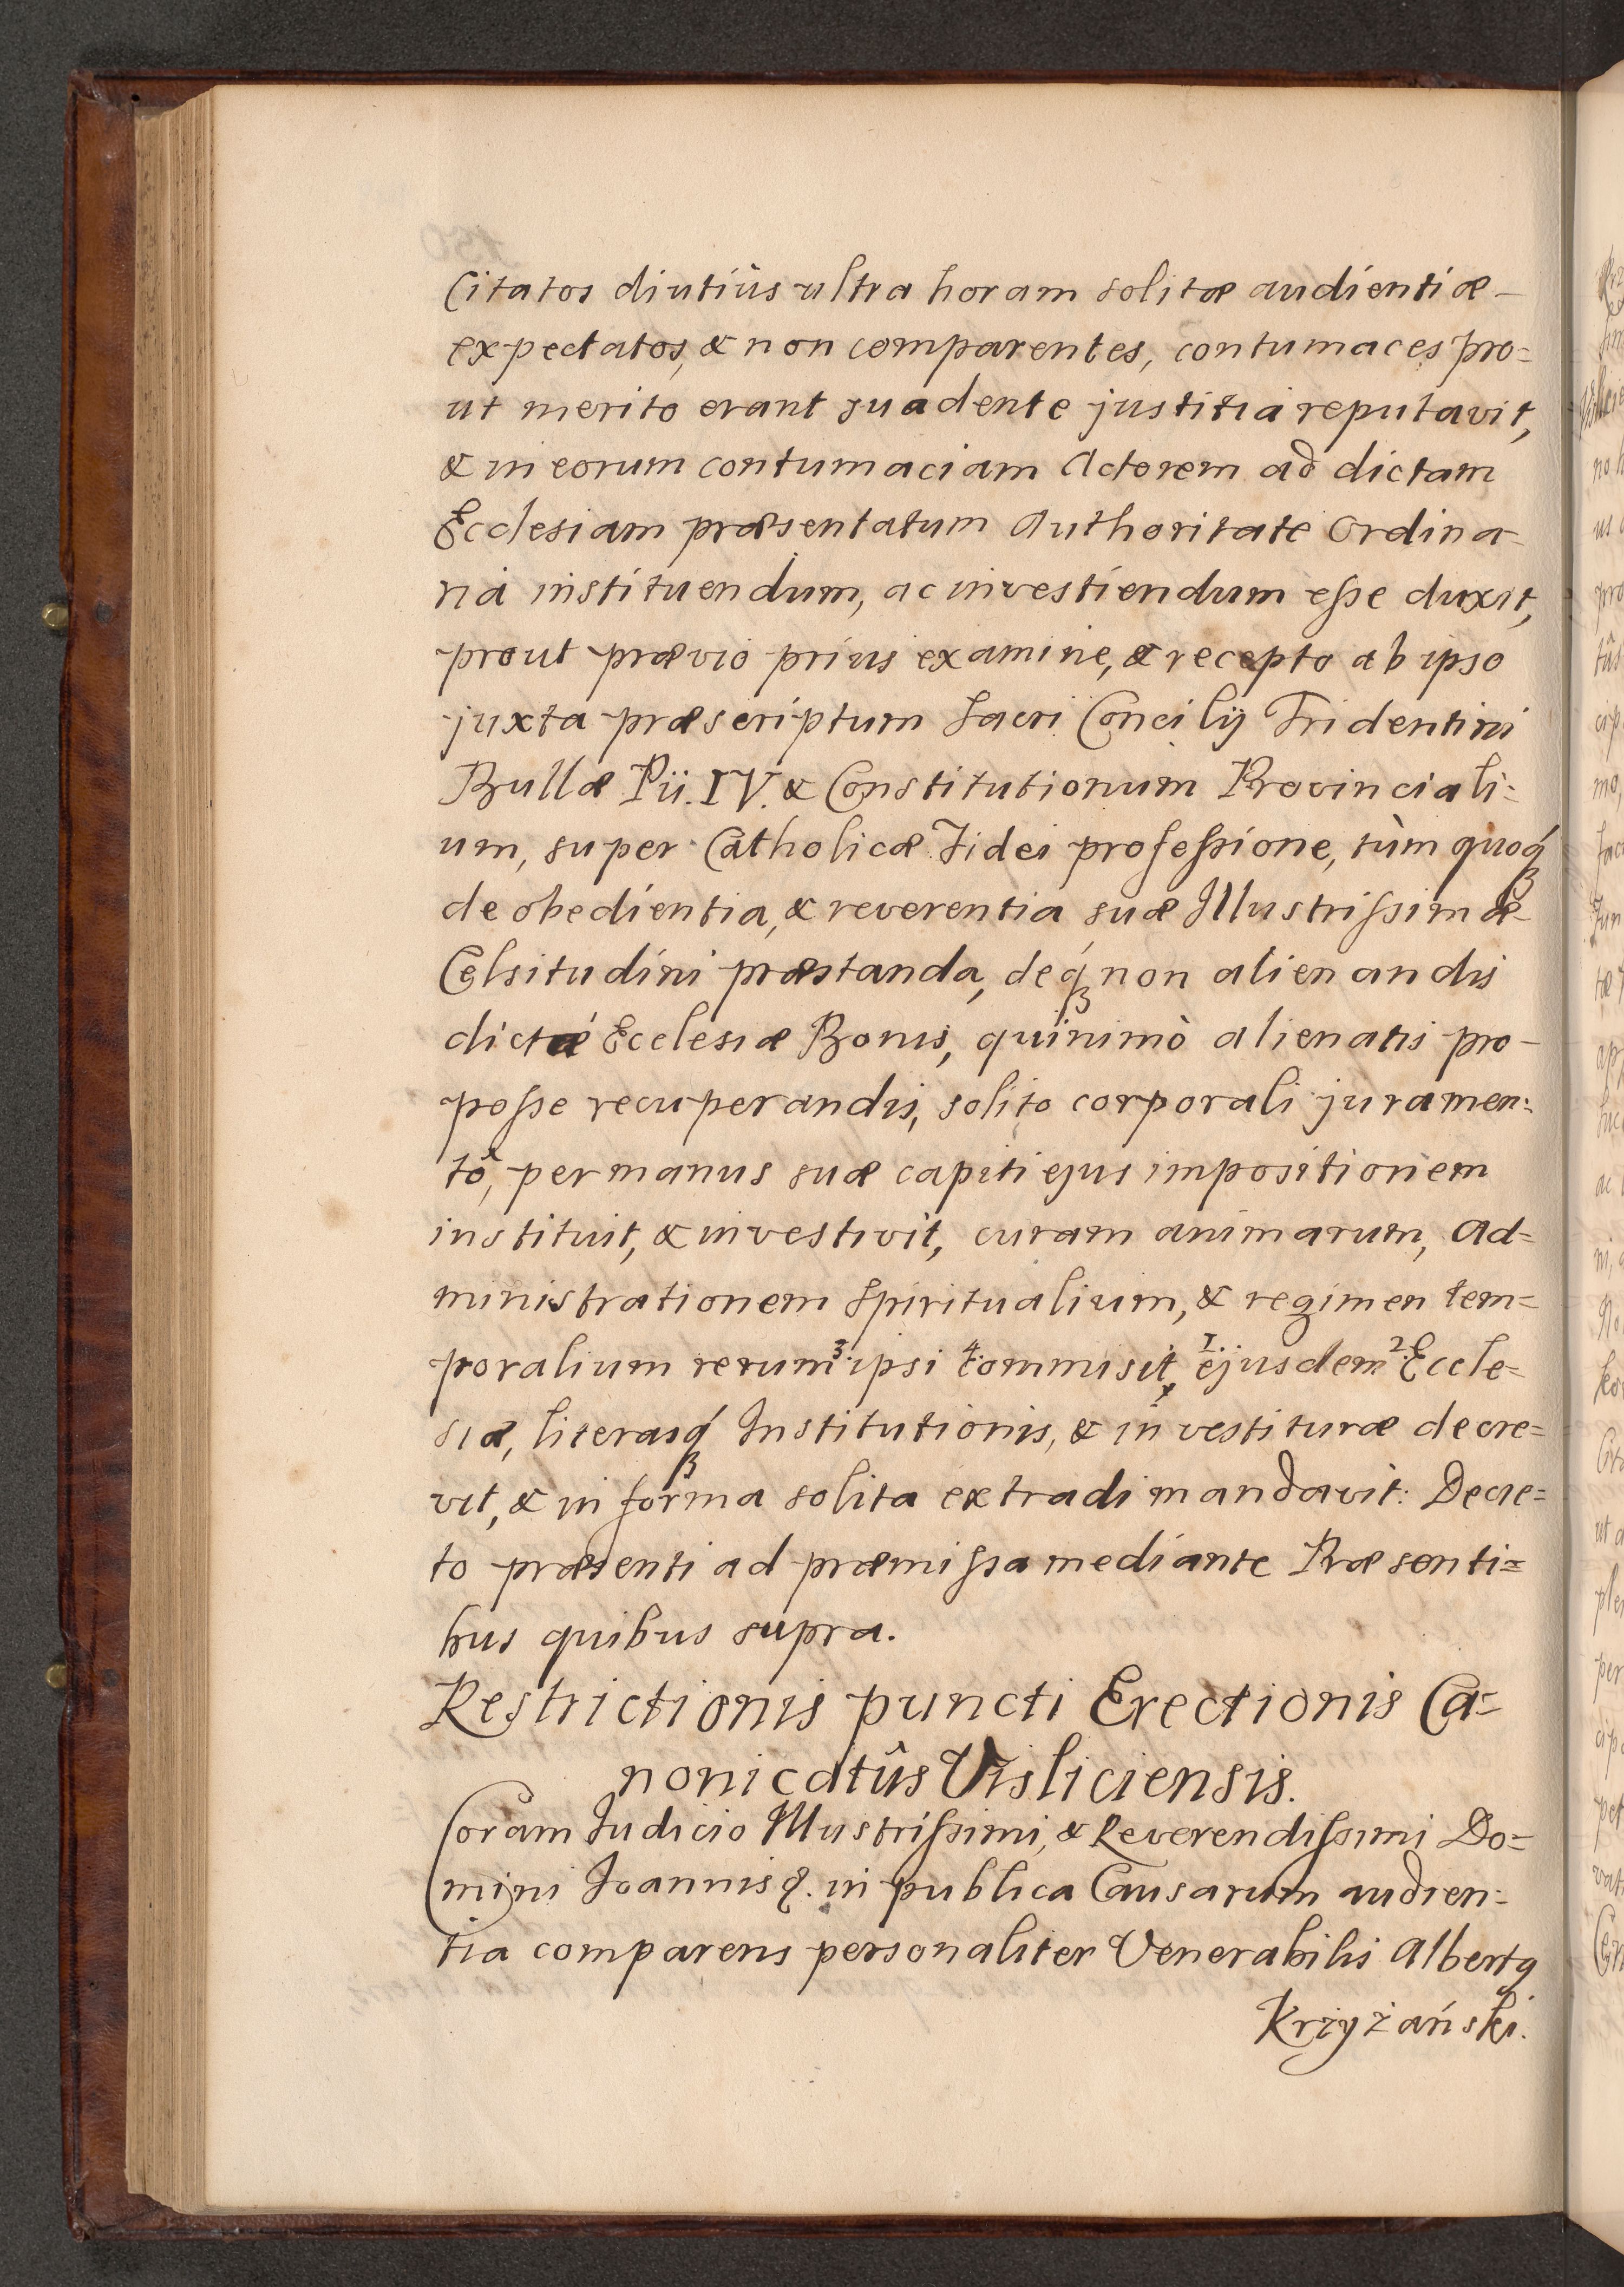 Citatos diutiùs ultra horam solitæ audientiæ
expectatos, & non comparentes, contumaces pro=
ut merito erant suadente justitia reputavit,
& in eorum contumaciam Actorem ad dictam
Ecclesiam præsentatum Authoritate Ordina-
ria instituendum, ac investiendum eſse duxit,
prout prævio prius examine, & recepto ab ipso
juxta præscriptum Sacri Concilij Tridentini
Bullæ Pii. IV. & Constitutionum Provinciali=
um, super Catholicæ Fidei profeſsione, tùm quoqꝫ
de obedientia, & reverentia suæ Illustriſsimæ
Celsitudini præstanda, deqꝫ non alienandis
dictæ Ecclesiæ Bonis, quinimò alienatis pro-
poſse recuperandis, solito corporali juramen=
tô, per manus suæ capiti ejus impositionem
instituit, & investivit, curam animarum, Ad=
ministrationem Spiritualium, & regimen tem=
poralium rerum 3. ipsi 4. commisit, 1. ejusdem 2. Eccle=
siæ, literasqꝫ Institutionis, & investituræ decre=
vit, & in forma solita extradi mandavit: Decre=
to præsenti ad præmiſsa mediante Præsenti=
bus quibus supra.
Restrictionis puncti Erectionis Ca=
nonicatûs Visliciensis.
Coram Judicio Illustriſsimi, & Reverendiſsimi Do=
mini Joannis &. in publica Causarum audien=
tia comparens personaliter Venerabilis Albertꝰ
Krzyżański.